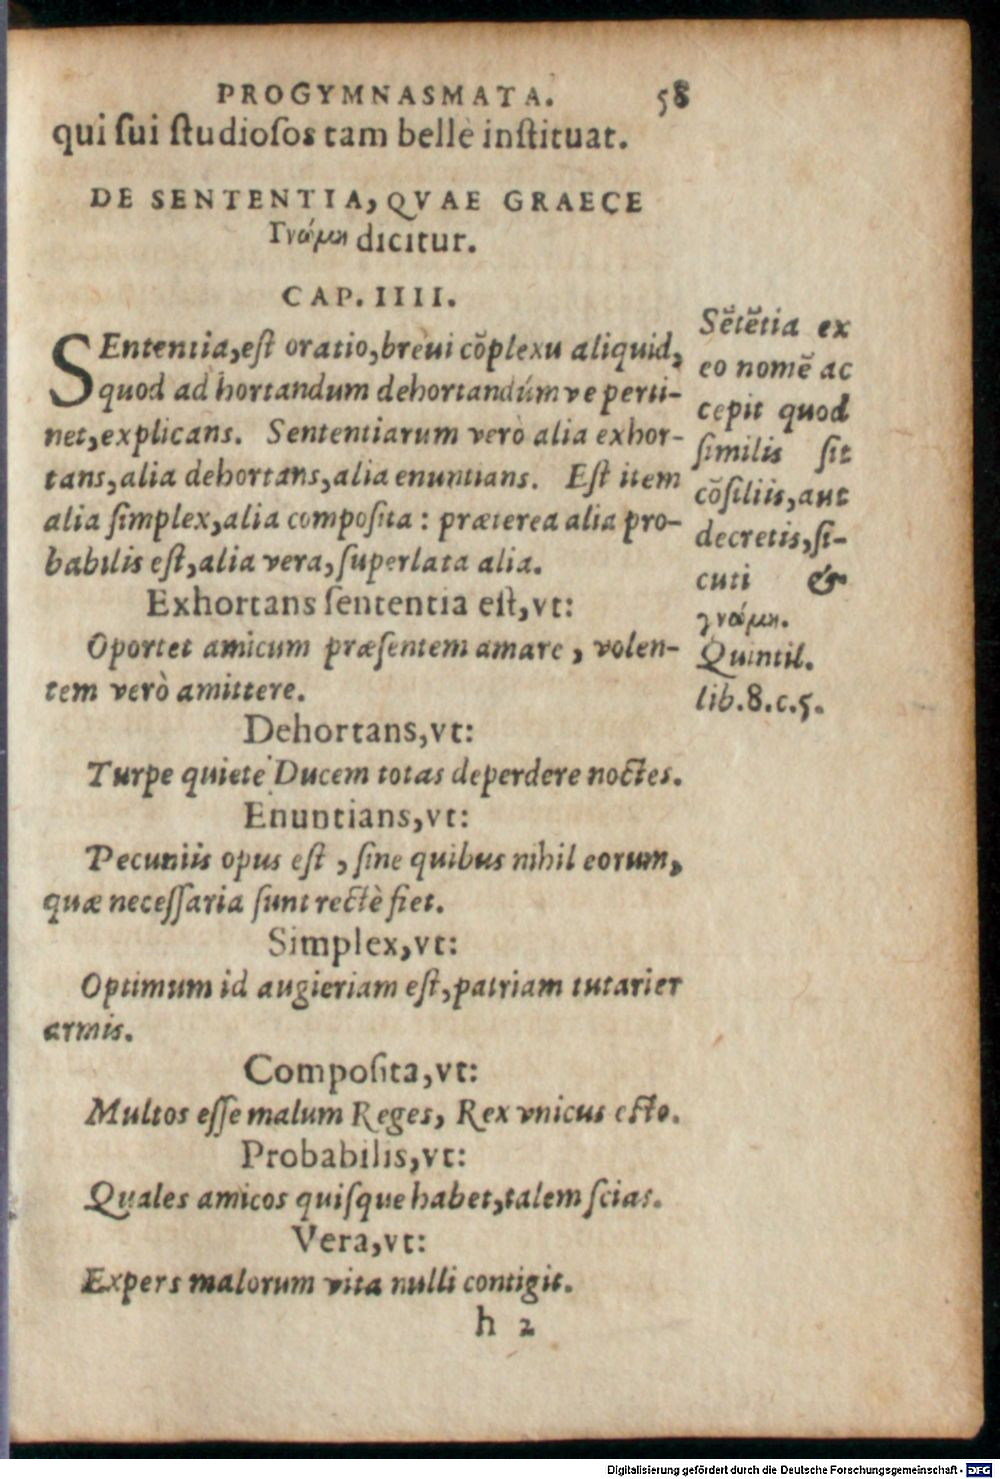 PROGYMNASMATA. 58
qui sui studiosos tam bellè instituat.
DE SENTENTIA, QVAE GRAECE
Γνώμη dicitur.
CAP. IIII.
SEntentia, est oratio, breui cõplexu aliquid,
quod ad hortandum dehortandúmve perti-
net, explicans. Sententiarum verò alia exhor-
tans, alia dehortans, alia enuntians. Est item
alia simplex, alia composita: præterea alia pro-
babilis est, alia vera, superlata alia.
Exhortans sententia est, vt:
Oportet amicum præsentem amare, volen-
tem verò amittere.
Dehortans, vt:
Turpe quiete Ducem totas deperdere noctes.
Enuntians, vt:
Pecuniis opus est, sine quibus nihil eorum,
quæ necessaria sunt rectè fiet.
Simplex, vt:
Optimum id augieriam est, patriam tutarier
armis.
Composita, vt:
Multos esse malum Reges, Rex vnicus esto.
Probabilis, vt:
Quales amicos quisque habet, talem scias.
Vera, vt:
Expers malorum vita nulli contigit.
h 2
Sẽtẽtia ex
eo nomẽ ac
cepit quod
similis sit
cõsiliis, aut
decretis, si-
cuti &
γνώμη.
Quintil.
lib. 8. c. 5.
Digitalisierung gefördert durch die Deutsche Forschungsgemeinschaft - DFG